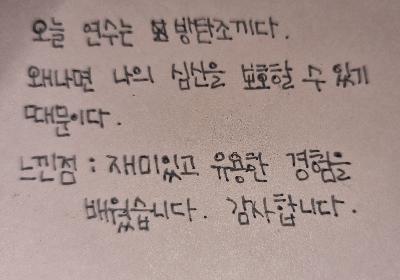 오늘 연수는 방탄조끼다.
왜냐면 나의 심신을 보호할 수 있기
때문이다.
느낀점 : 재미있고 유용한 경험을
배웠습니다. 감사합니다.